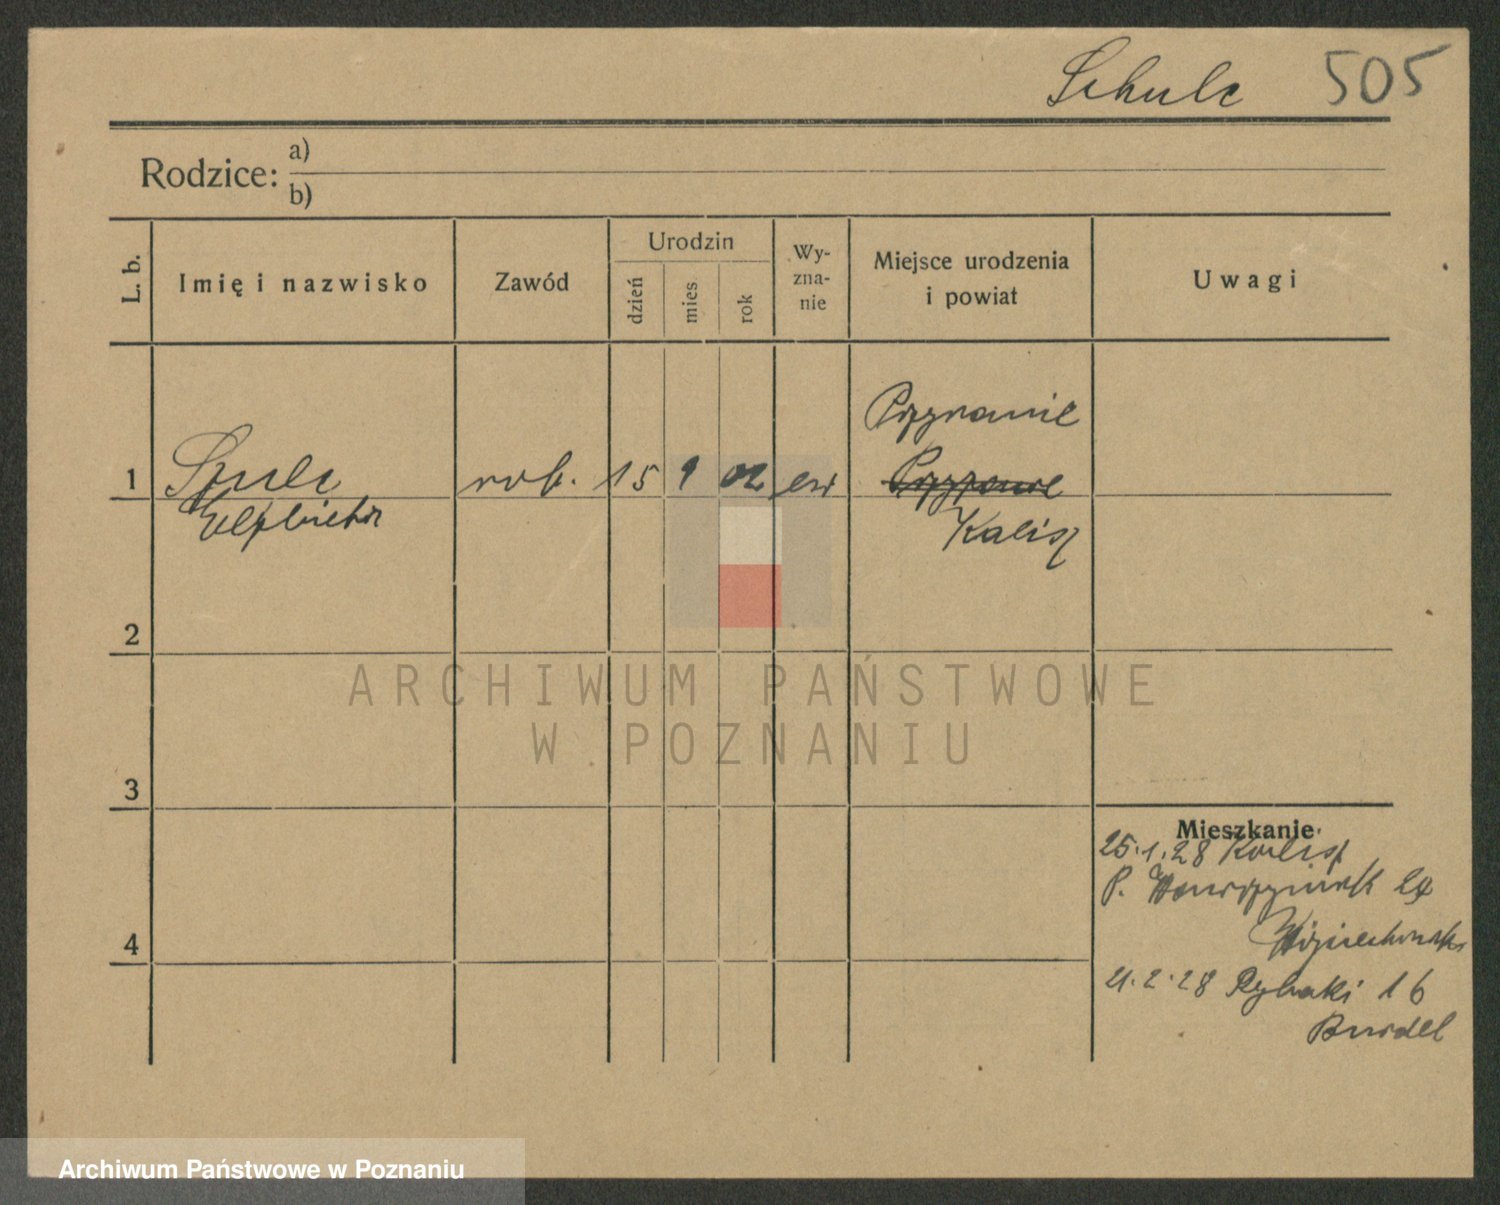 Schulc 505
Rodzice: a)
b)
L. b.
Imię i nazwisko
Zawód
Urodzin
dzień
mies
rok
Wy-
zna-
nie
Miejsce urodzenia
i powiat
Uwagi
Pzyranie
1 Szulc rob. 15 9 02 ew
Elżbieta
Kalisz
2
3
Mieszkanie
25.1.28 Kalisz
P. Wawrzyniak 24
Wojciechowski
4
21.2.28 Rybaki 16
Burdel
ARCHIWUM PAŃSTWOWE
W POZNANIU
Archiwum Państwowe w Poznaniu